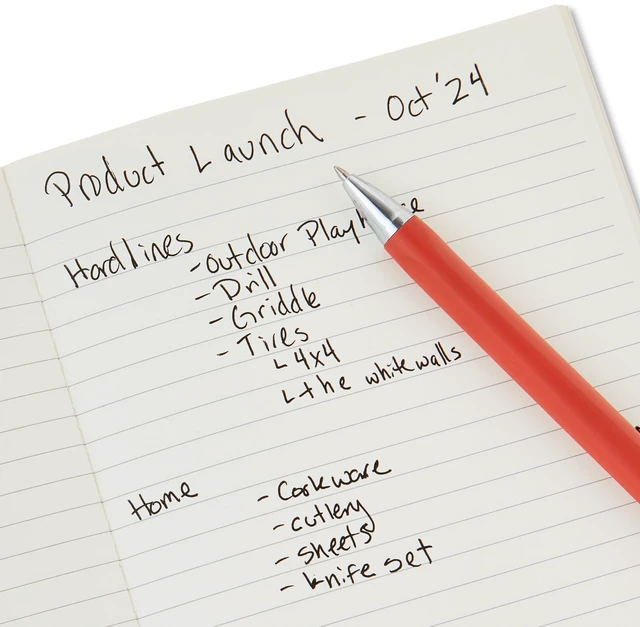 Product Launch - Oct '24
Hardlines - outdoor Playhouse
- Drill
- Griddle
- Tires
↳ 4x4
↳ the whitewalls
Home - Corkware
- cutlery
- sheets
- knife set